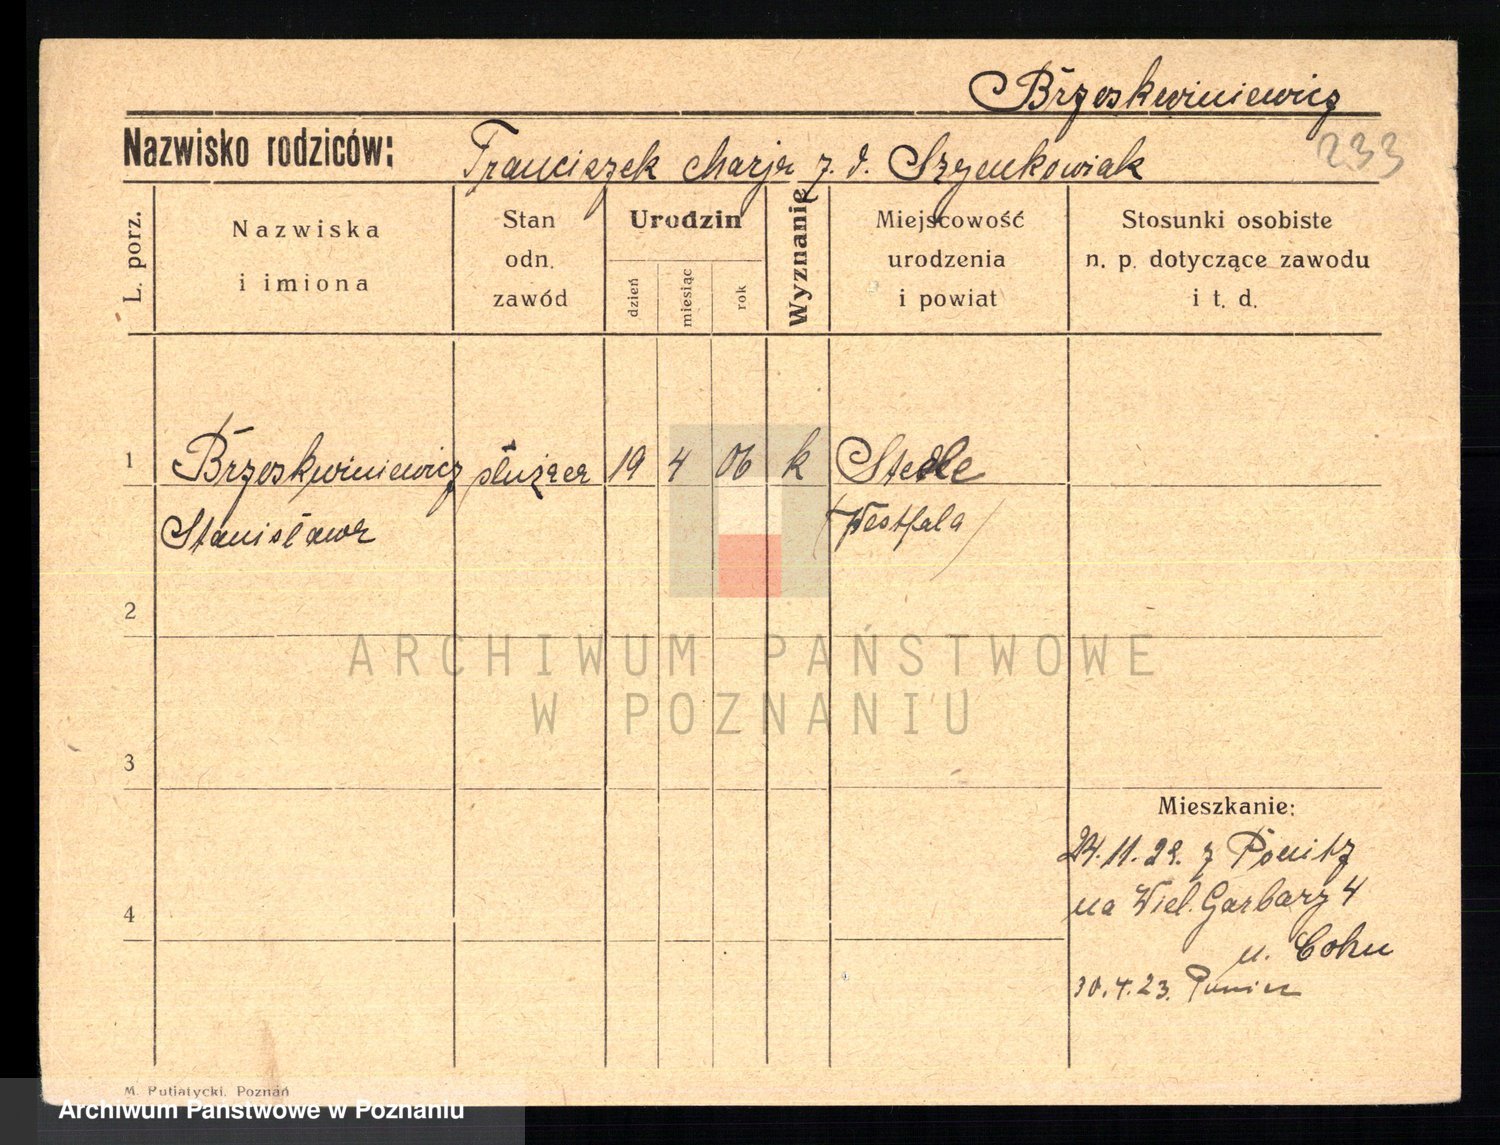 Brzoskwiniewicz
Nazwisko rodziców: Franciszek Marja z. d. Szymkowiak
233
L. porz.
Nazwiska
i imiona
Stan
odn.
zawód
Urodzin
dzień
miesiąc
rok
Wyznanie
Miejscowość
urodzenia
i powiat
Stosunki osobiste
n. p. dotyczące zawodu
i t. d.
1 Brzoskwiniewicz służąca 19 4 06 k Steele
Stanisława (Westfala)
2
ARCHIWUM PAŃSTWOWE
W POZNANIU
3
Mieszkanie:
24.11.22. z Ponitz
na Wiel. Garbary 4
4
u. Cohn
30.4.23. Puniec
M. Putiatycki, Poznań
Archiwum Państwowe w Poznaniu